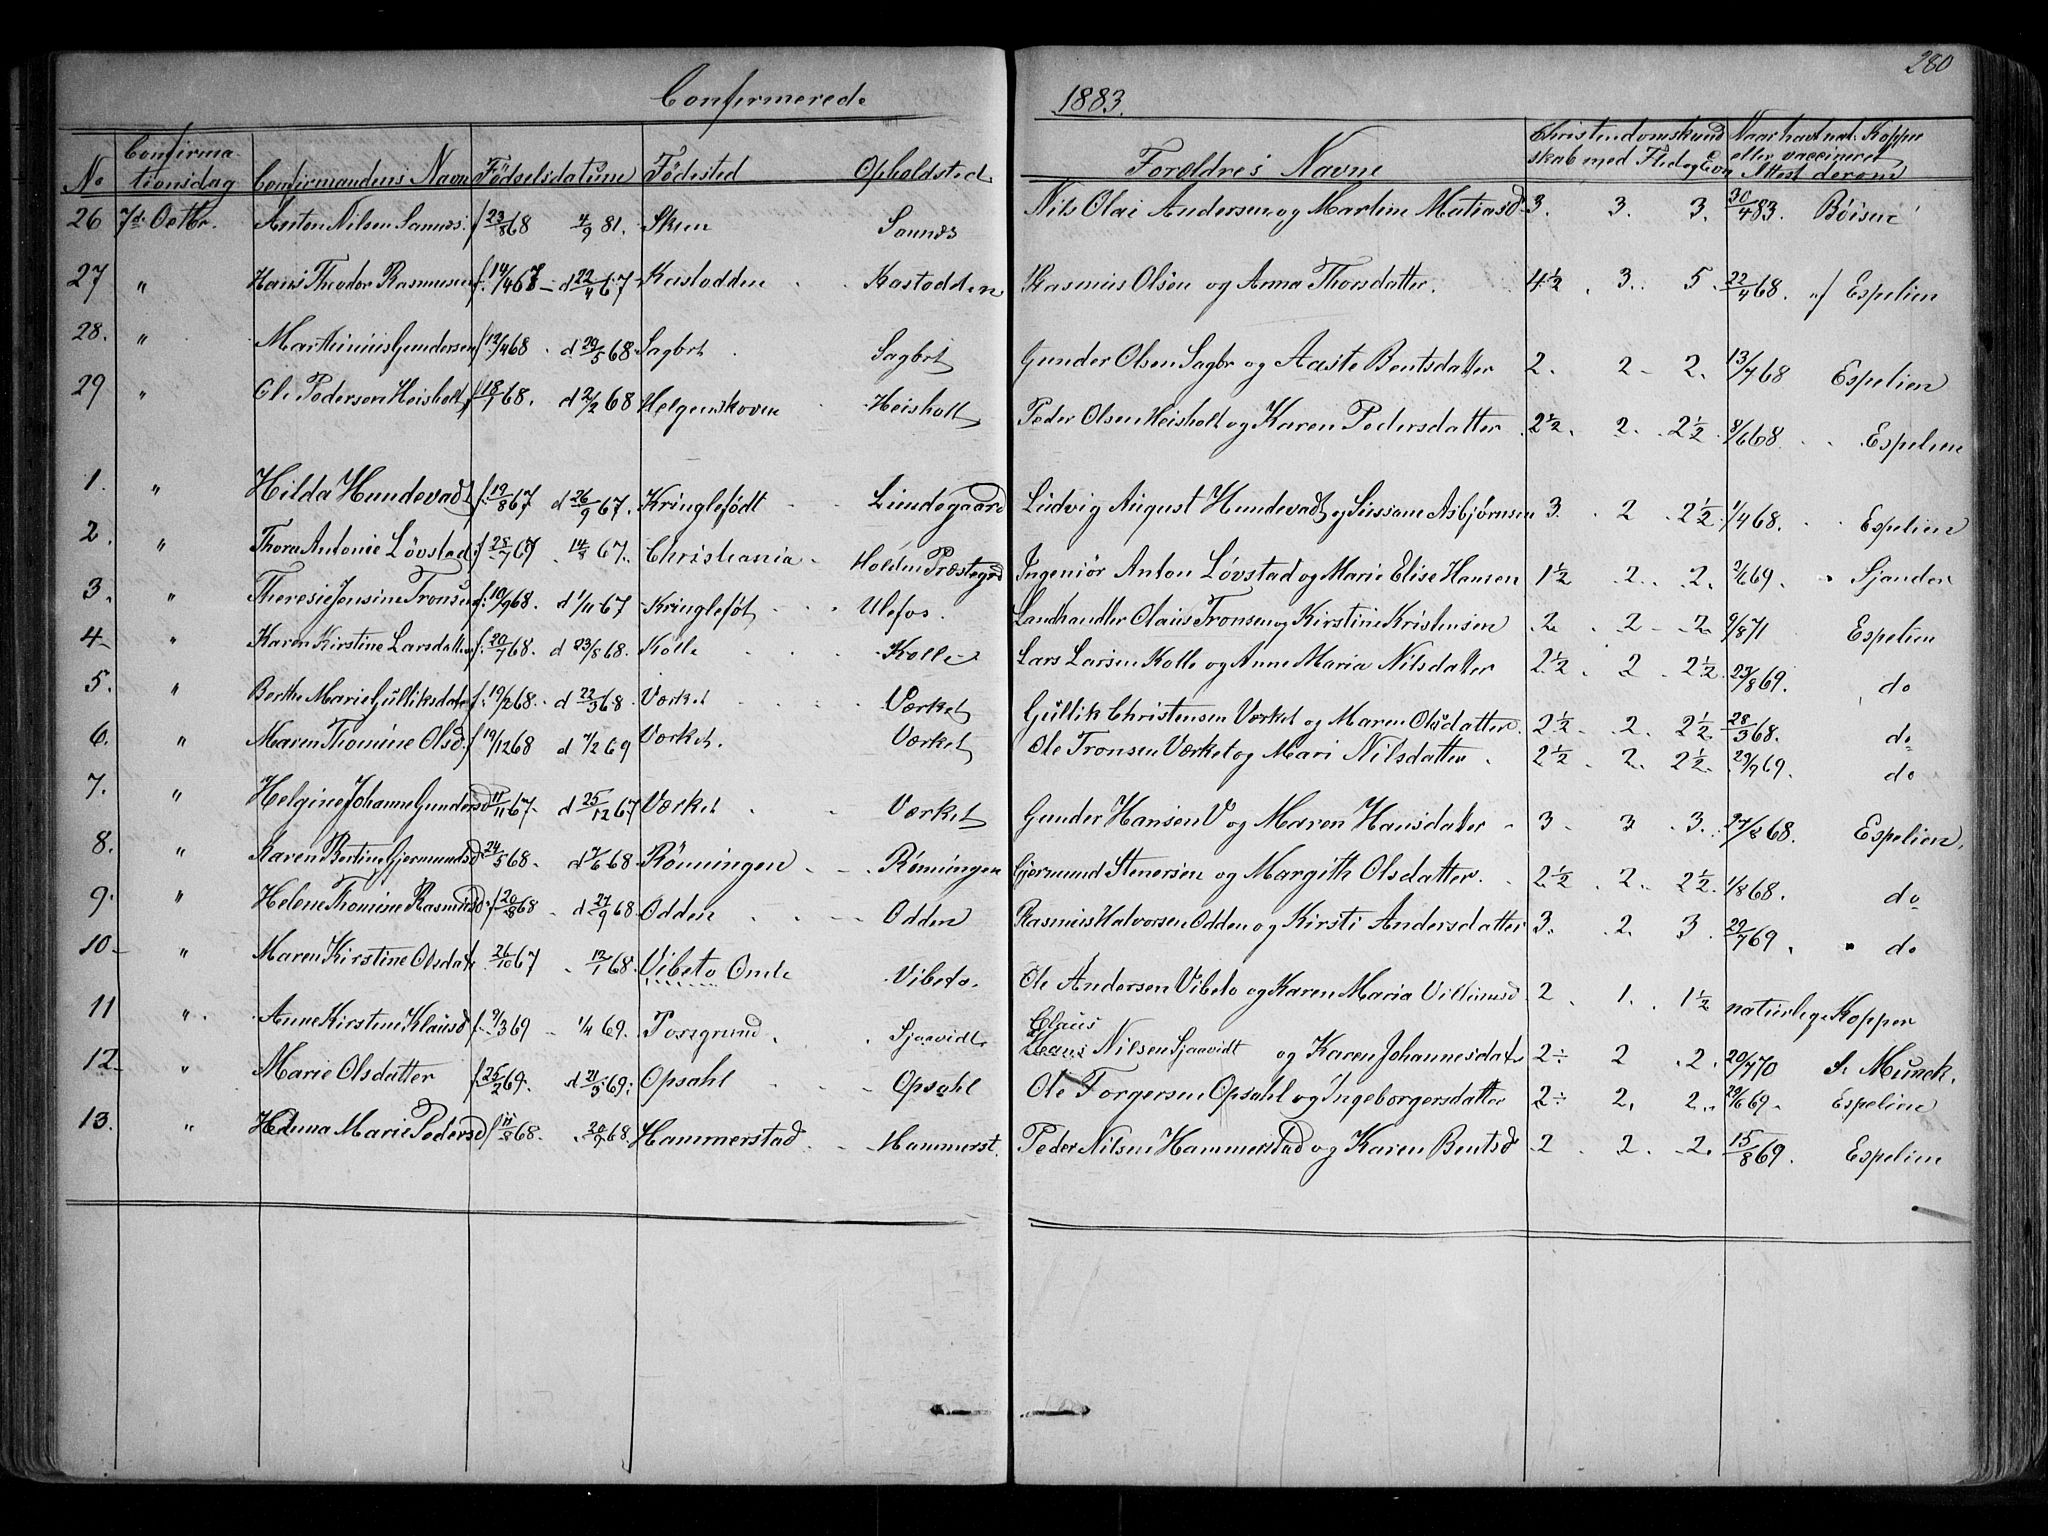 280
Confirmerede 1883.
No Confirmationsdag Confirmandens Navn Fødselsdatum Fødested Opholdsted Forældres Navne Christendomskundskab med Flid og Evn Naar havt nat. Kopper eller vaccineret Attest derom
26 7de Octbr. Anton Nilsen Sannes f 23/8 68 4/9 81. Skien Sannes Nils Olai Andersen og Martine Matiasd 3. 3. 3. 30/4 83. Böisen
27 " Hans Theodor Rasmussen f. 14/4 67 - d 22/4 67 - Kastodden Kastodden Rasmus Olsen og Anna Thorsdatter. 4½ . 3. 5. 22/4 68. Espelien
28. " Marthinius Gundersen f 12/4 68 . d 29/5 68 Sagbrt Sagbrt Gunder Olsen Sagbr og Aaste Bentsdatter 2. 2 - 2. 13/7 68 Espelien
29 " Ole Pedersen Heisholt f 18/1 68. d 2/2 68 Helgenskoven Heisholt Peder Olsen Heisholt og Karen Pedersdatter 2½. 2. 2½. 8/6 68. Espelien
1. " Hilda Hundevadt f. 19/8 67 d 26/9 67. Kringlefödt Lundegaard Ludvig August Hundevadt og Susane Asbjørnsen 3. 2 2½. 1/4 68. Espelien
2. " Thora Antonie Lövstad f. 28/7 67 . 14/8 67. Christiania Holden Præstegrd Ingeniör Anton Lövstad og Marie Elise Hansen 1½ 2. 2. 2/6 69. Sjander
3. " Theresie Jensine Tronsen f. 10/9 68. d 1/11 67 Kringleföt Ulefos. Landhandler Olaus Tronsen og Kirstine Kristensen 2. 2 - 2. 9/8 71 Espelien
4- " Karen Kirstine Larsdatter f. 20/7 68. d 23/8 68. Kolle Kolle Lars Larsen Kolle og Anne Maria Nilsdatter 2½ 2 2½. 23/8 69. do
5. " Berthe Marie Gulliksdatr f. 19/2 68 . d 22/3 68 Værket Værket Gullik Christensen Værket og Maren Olsdatter. 2½ 2. 2½. 28/3 68. do
6. " Maren Thomine Olsd. f 19/12 68 d 7/2 69 Værket. Værket Ole Tronsen Værket og Mari Nilsdatter . 2½ 2. 2½. 29/7 69. do
7. " Helgine Johanne Gundersd 11/11 67. d 25/12 67 Værket Værket Gunder Hansen V og Maren Hansdatter 3. 3 3. 27/8 68. Espelien.
8. " Karen Bertine Gjermundsd 24/5 68. d 7/6 68 Rönningen Rönningen Gjermund Stenersen og Margith Olsdatter. 2½ . 2. 2½. 1/8 68. do
9. " Helene Thomine Rasmusd. f 20/8 68 . d 27/9 68 Odden Odden Rasmus Halvorsen Odden og Kirsti Andersdatter 3. 2. 3. 29/7 69. do
10- " Maren Kirstine Olsdatr f. 26/10 67 . 12/1 68. Vibeto Onde Vibeto. Ole Andersen Vibeto og Karen Maria Villumsd 2 . 1. 1½ naturlige Kopper
11 " Anne Kirstine Klausd f. 9/3 69 1/4 69. Porsgrund. Sjaavidt Claus Nilsen Sjaavidt og Karen Johannesdatr 2÷ 2 2. 20/7 70 S. Munck.
12- " Marie Olsdatter f. 25/2 69. d 21/3 69. Opsahl Opsahl Ole Torgersen Opsahl og Ingeborgersdatter 2÷ 2. 2. 29/6 69. Espelien
13. " Hedma Marie Pedersd f 11/8 68. . 20/9 68. Hammerstad Hammerst. Peder Nilsen Hammerstad og Karen Bentsd 2 . 2. 2. 15/8 69. Espelien